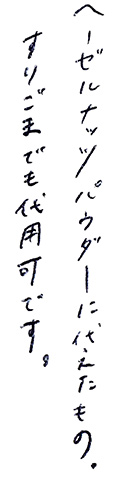 ヘーゼルナッツパウダーに代えたもの.
すりごまでも代用可です。